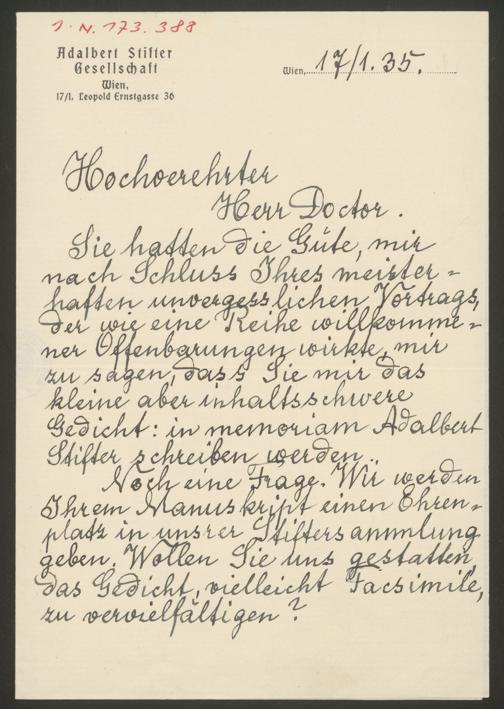 I. N. 173.388
Adalbert Stifter
Gesellschaft
Wien,
17/I, Leopold Ernstgasse 36
Wien, 17/1.35.
Hochverehrter
Herr Doctor.
Sie hatten die Güte, mir
nach Schluss Ihres meister=
haften unvergesslichen Vortrags,
der wie eine Reihe willkomme=
ner Offenbarungen wirkte, mir
zu sagen, dass Sie mir das
kleine aber inhaltsschwere
Gedicht: in memoriam Adalbert
Stifter schreiben werden..
Noch eine Frage. Wir werden
Ihrem Manuskript einen Ehren=
platz in unsrer Stiftersammlung
geben. Wollen Sie uns gestatten,
das Gedicht, vielleicht Facsimile,
zu vervielfältigen?